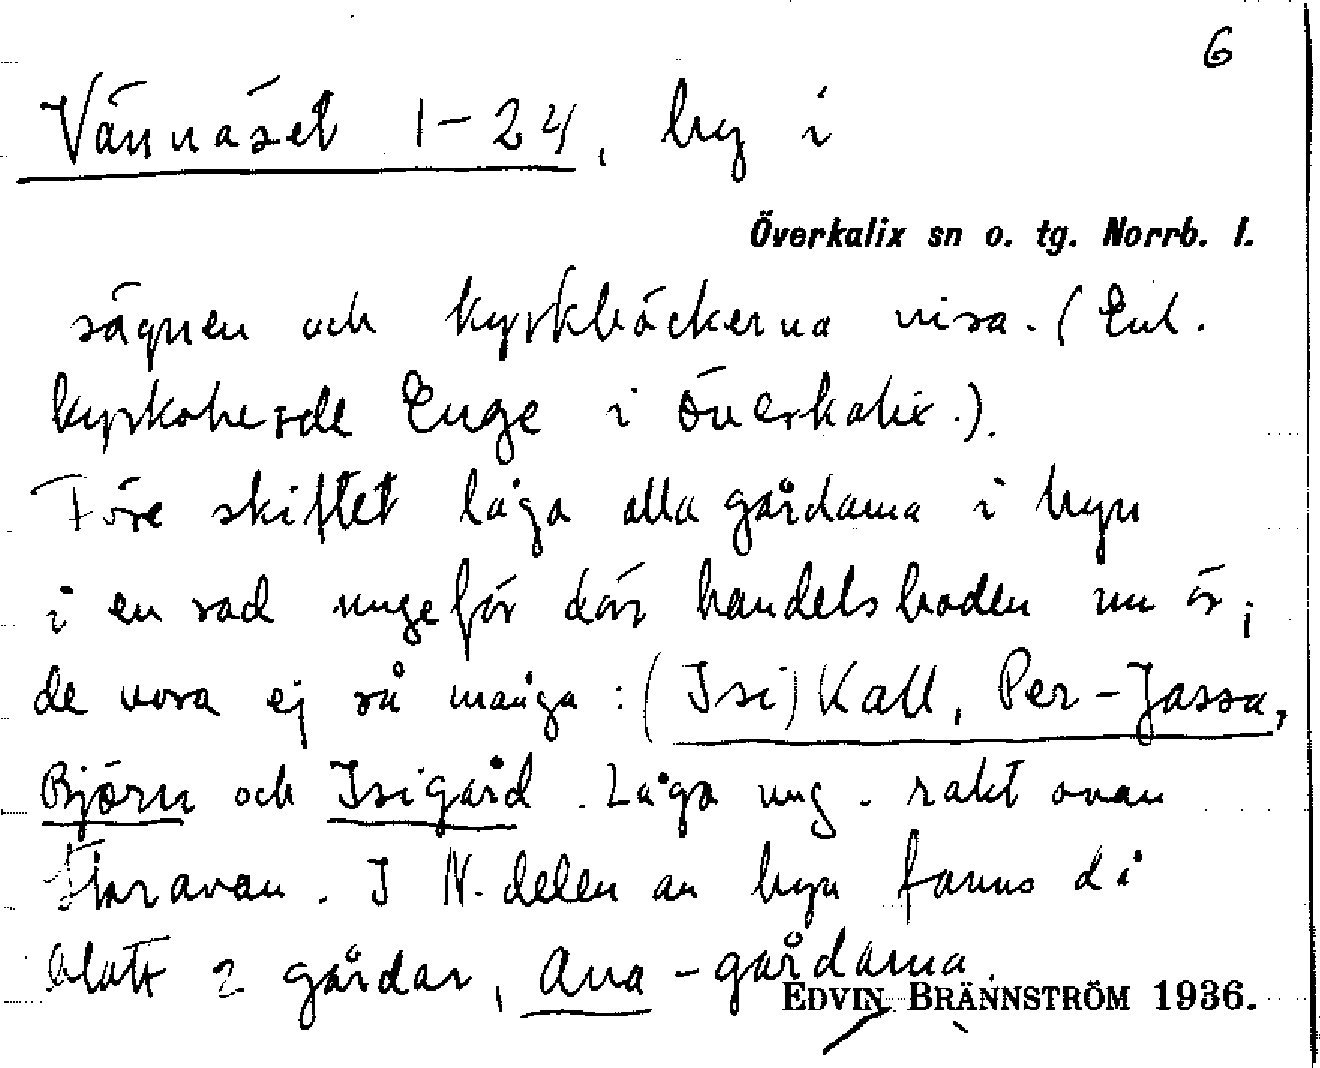 6
Vännäset 1-24, by i
Överkalix sn o. tg. Norrb. l.
sägnen och kyrkböckerna visa. (Enl.
kyrkoherde Enge i Överkalix.).
Före skiftet låga alla gårdarna i byn
i en rad ungefär där handelsboden nu är;
de vora ej så många: (Isi) Kall, Per-Jassa,
Björn och Isigård. Låga ung. rakt ovan
. I N. delen av byn fanns då
blott 2 gårdar, Ana-gårdarna.
EDVIN BRÄNNSTRÖM 1936.